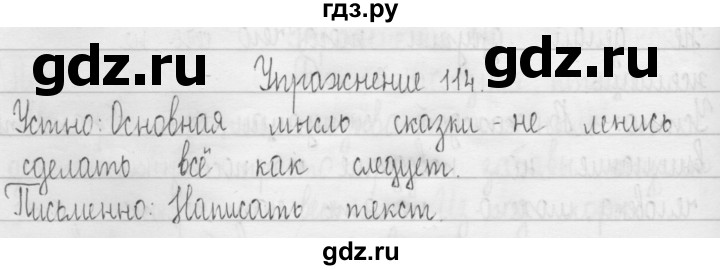 гдз.ру
gdz.ru gdz.ru
Упражнение 114.
Устно: Основная мысль сказки - не ленись
сделать всё как следует.
Письменно: Написать текст.
gdz.ru